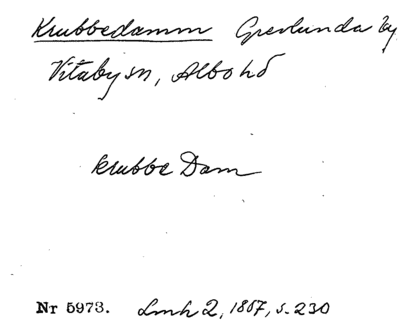 Krubbedamm Grevlunda by
Vitaby sn, Albo hd
krubbe Dam
Nr 5973. Lmh 2, 1867, s. 230